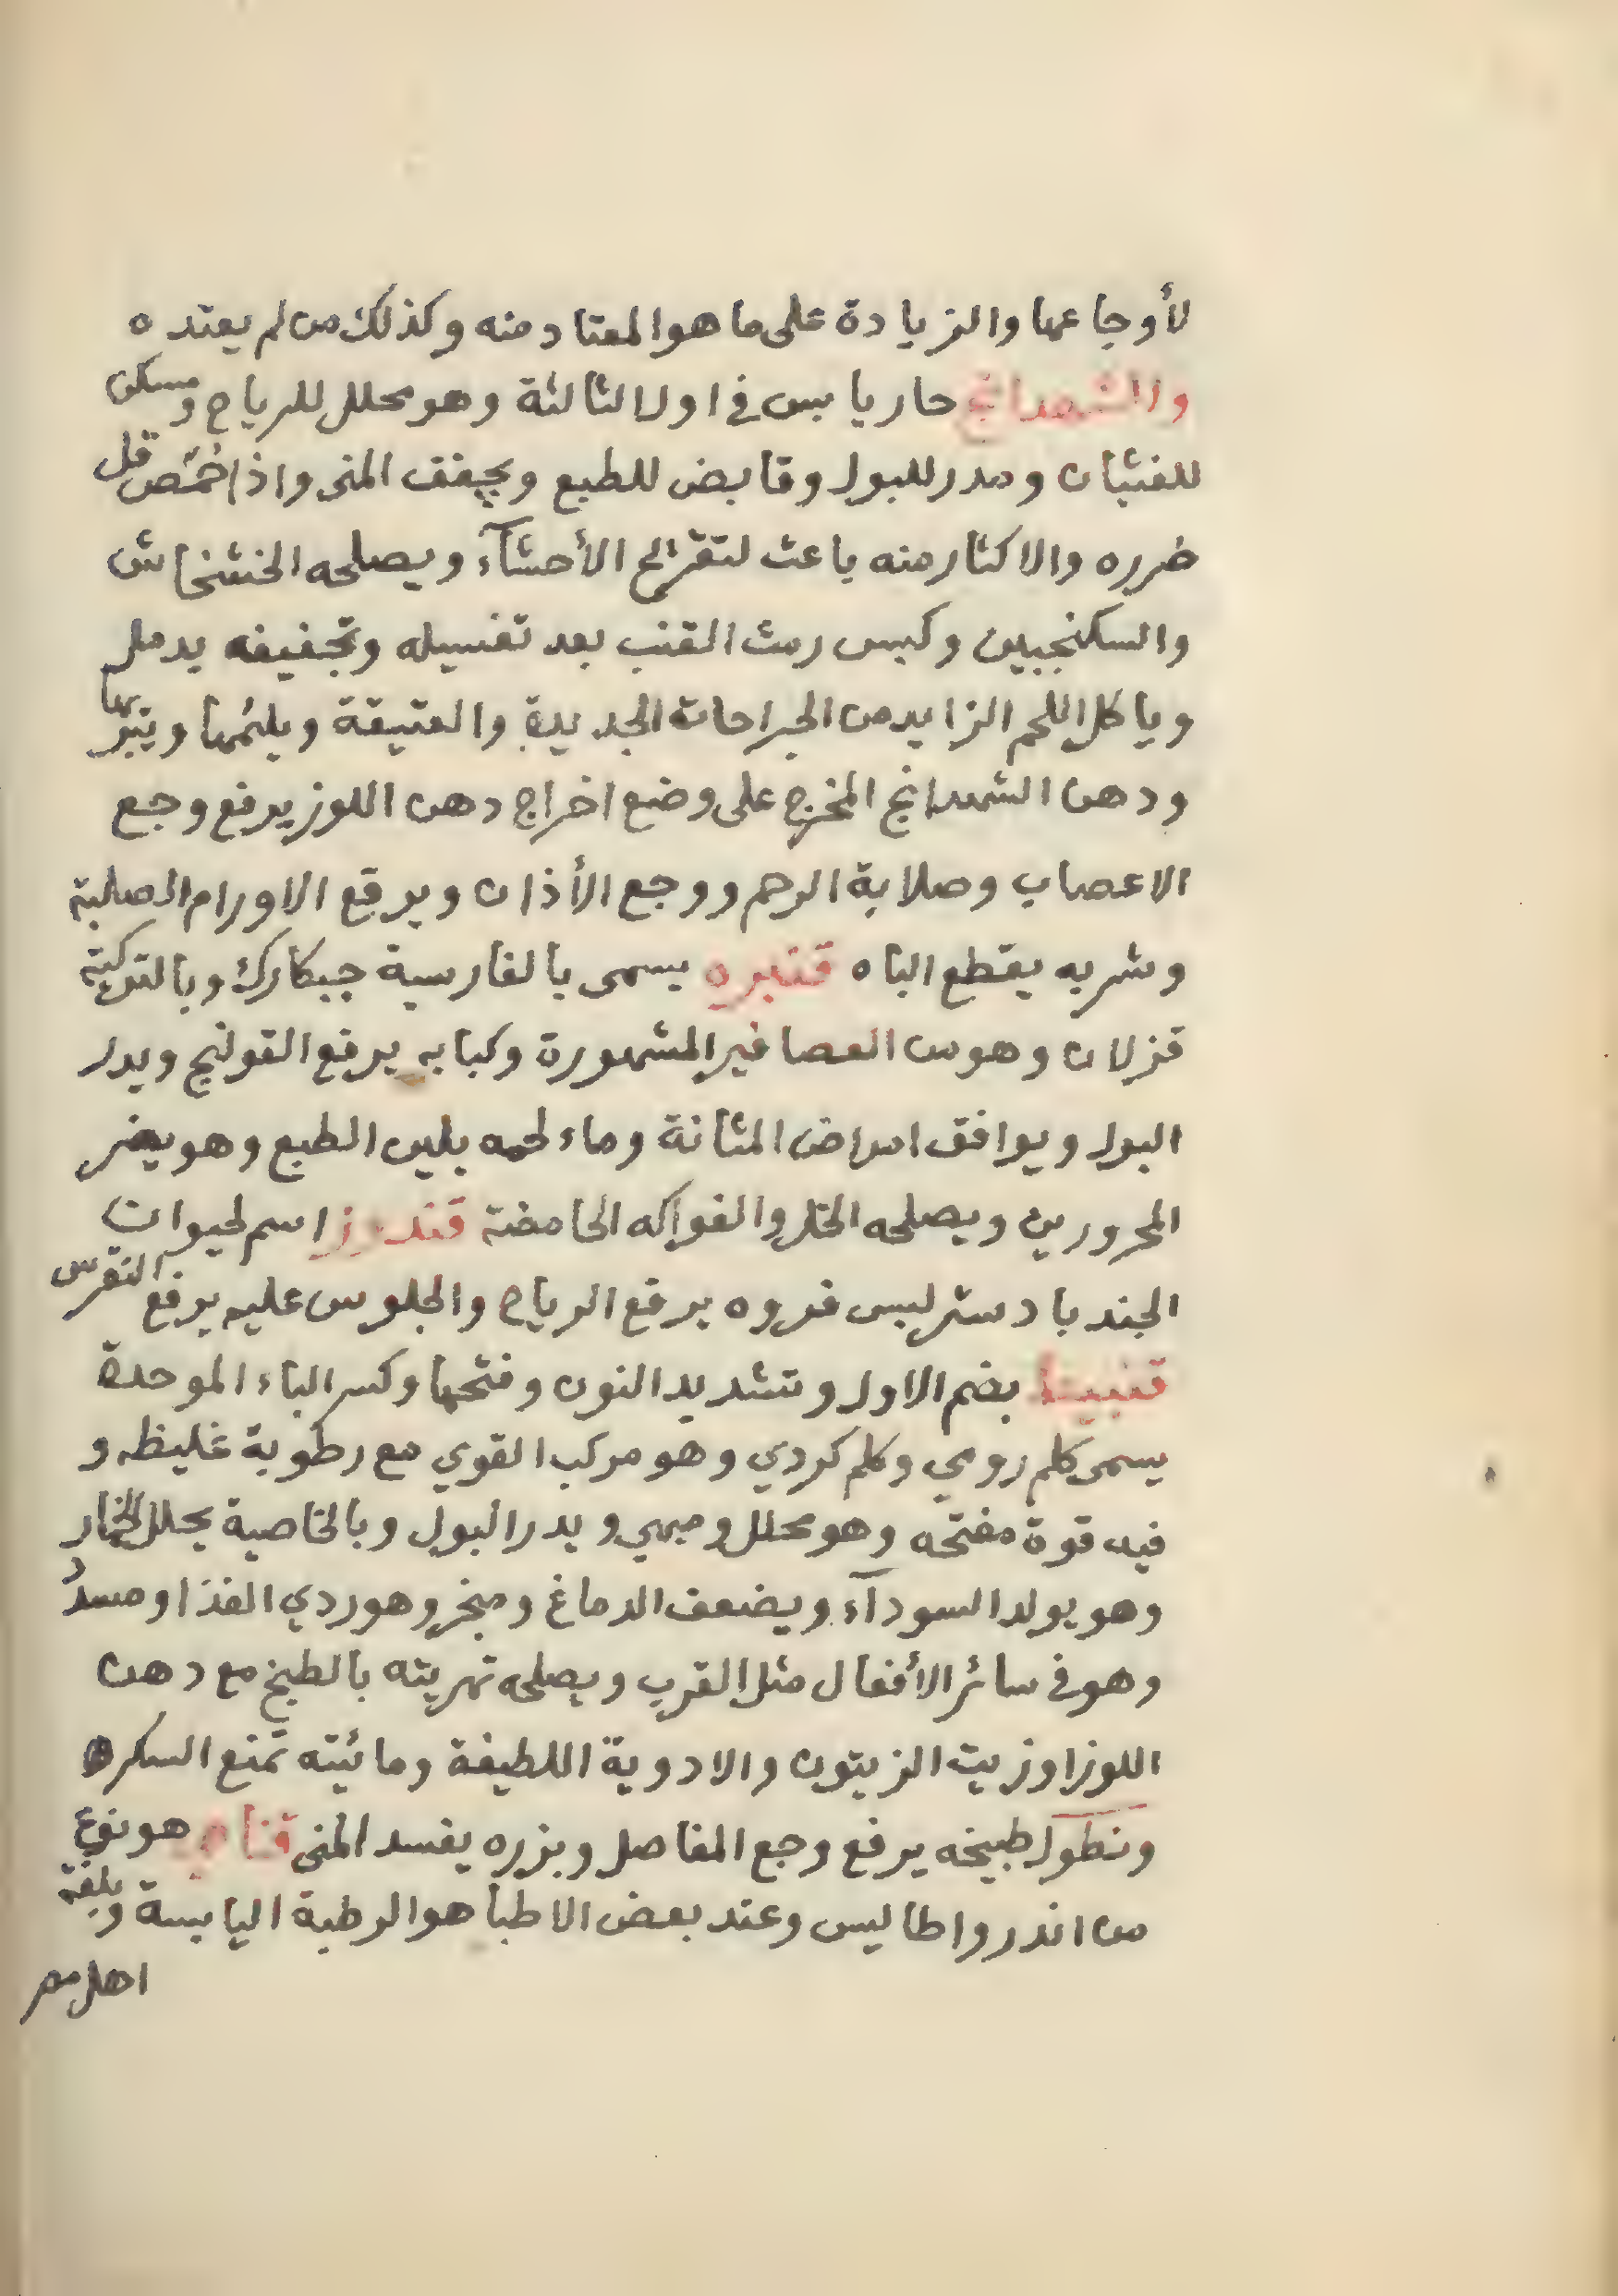 لأوجاعها والزيادة على ما هو المعتاد منه وكذلك من لم يعتده
والشهدانج حار يابس في اول الثالثة وهو محلل للرياح ومسكن
للغثيان ومدر للبول وقابض للطبع ويجفف المنى واذا حُمّص قل
ضرره والاكثار منه باعث لتقرّح الأحشآء ويصلحه الخشخاش
والسكنجبين وكبس رمث القنب بعد تغسيله وتجفيفه يدمل
وياكل اللحم الزايد من الجراحات الجديدة والعتيقة ويلئمها ويتبرّيها
ودهن الشهدانج المخرج على وضع اخراج دهن اللوز يرفع وجع
الاعصاب وصلابة الرحم ووجع الأذان ويرفع الاورام الصلبة
وشربه يقطع الباه قنبره يسمى بالفارسية جبكارك وبالتركية
قزلان وهو من العصافير المشهورة وكبابه يرفع القولنج ويدر
البول ويوافق امراض المثانة وماء لحمه يلين الطبع وهو يضر
المحرورين ويصلحه الخل والفواكه الحامضة قندوز اسم لحيوان
الجندبادستر لبس فروه يرفع الرياح والجلوس عليه يرفع النقرس
قنبيط بضم الاول وتشديد النون وفتحها وكسر الباء الموحدة
يسمى كلم رومي وكلم كردي وهو مركب القوي مع رطوبة غليظه و
فيه قوة مفتحه وهو محلل ومبهي ويدر البول وبالخاصية يحلل الخمار
وهو يولد السودآء ويضعف الدماغ ومبخر وهو ردي الغذا ومسدّد
وهو في سائر الأفعال مثل القرب ويصلحه تهريته بالطبخ مع دهن
اللوز او زيت الزيتون والادوية اللطيفة ومائيته تمنع السكر
ونطول طبيخه يرفع وجع المفاصل وبزره يفسد المنى هو نوع
من اندرواطاليس وعند بعض الاطبا هو الرطبة اليابسة وبلغة
اهل مصر